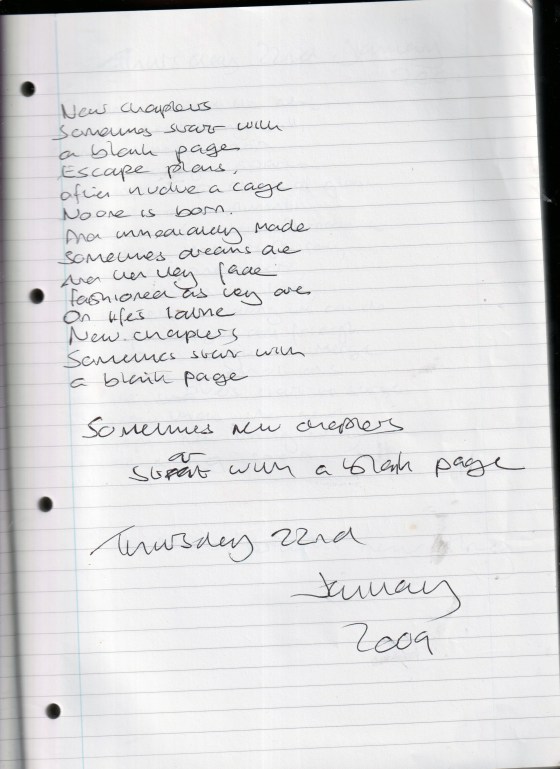 New chapters
Sometimes start with
a blank page
Escape plans,
often involve a cage
No one is born.
And immediately made
Sometimes dreams die
And then they fade
Fashioned as they are
On life's lathe
New chapters
Sometimes start with
a blank page
Sometimes new chapters
start with a blank page
Thursday 22nd
January
2009